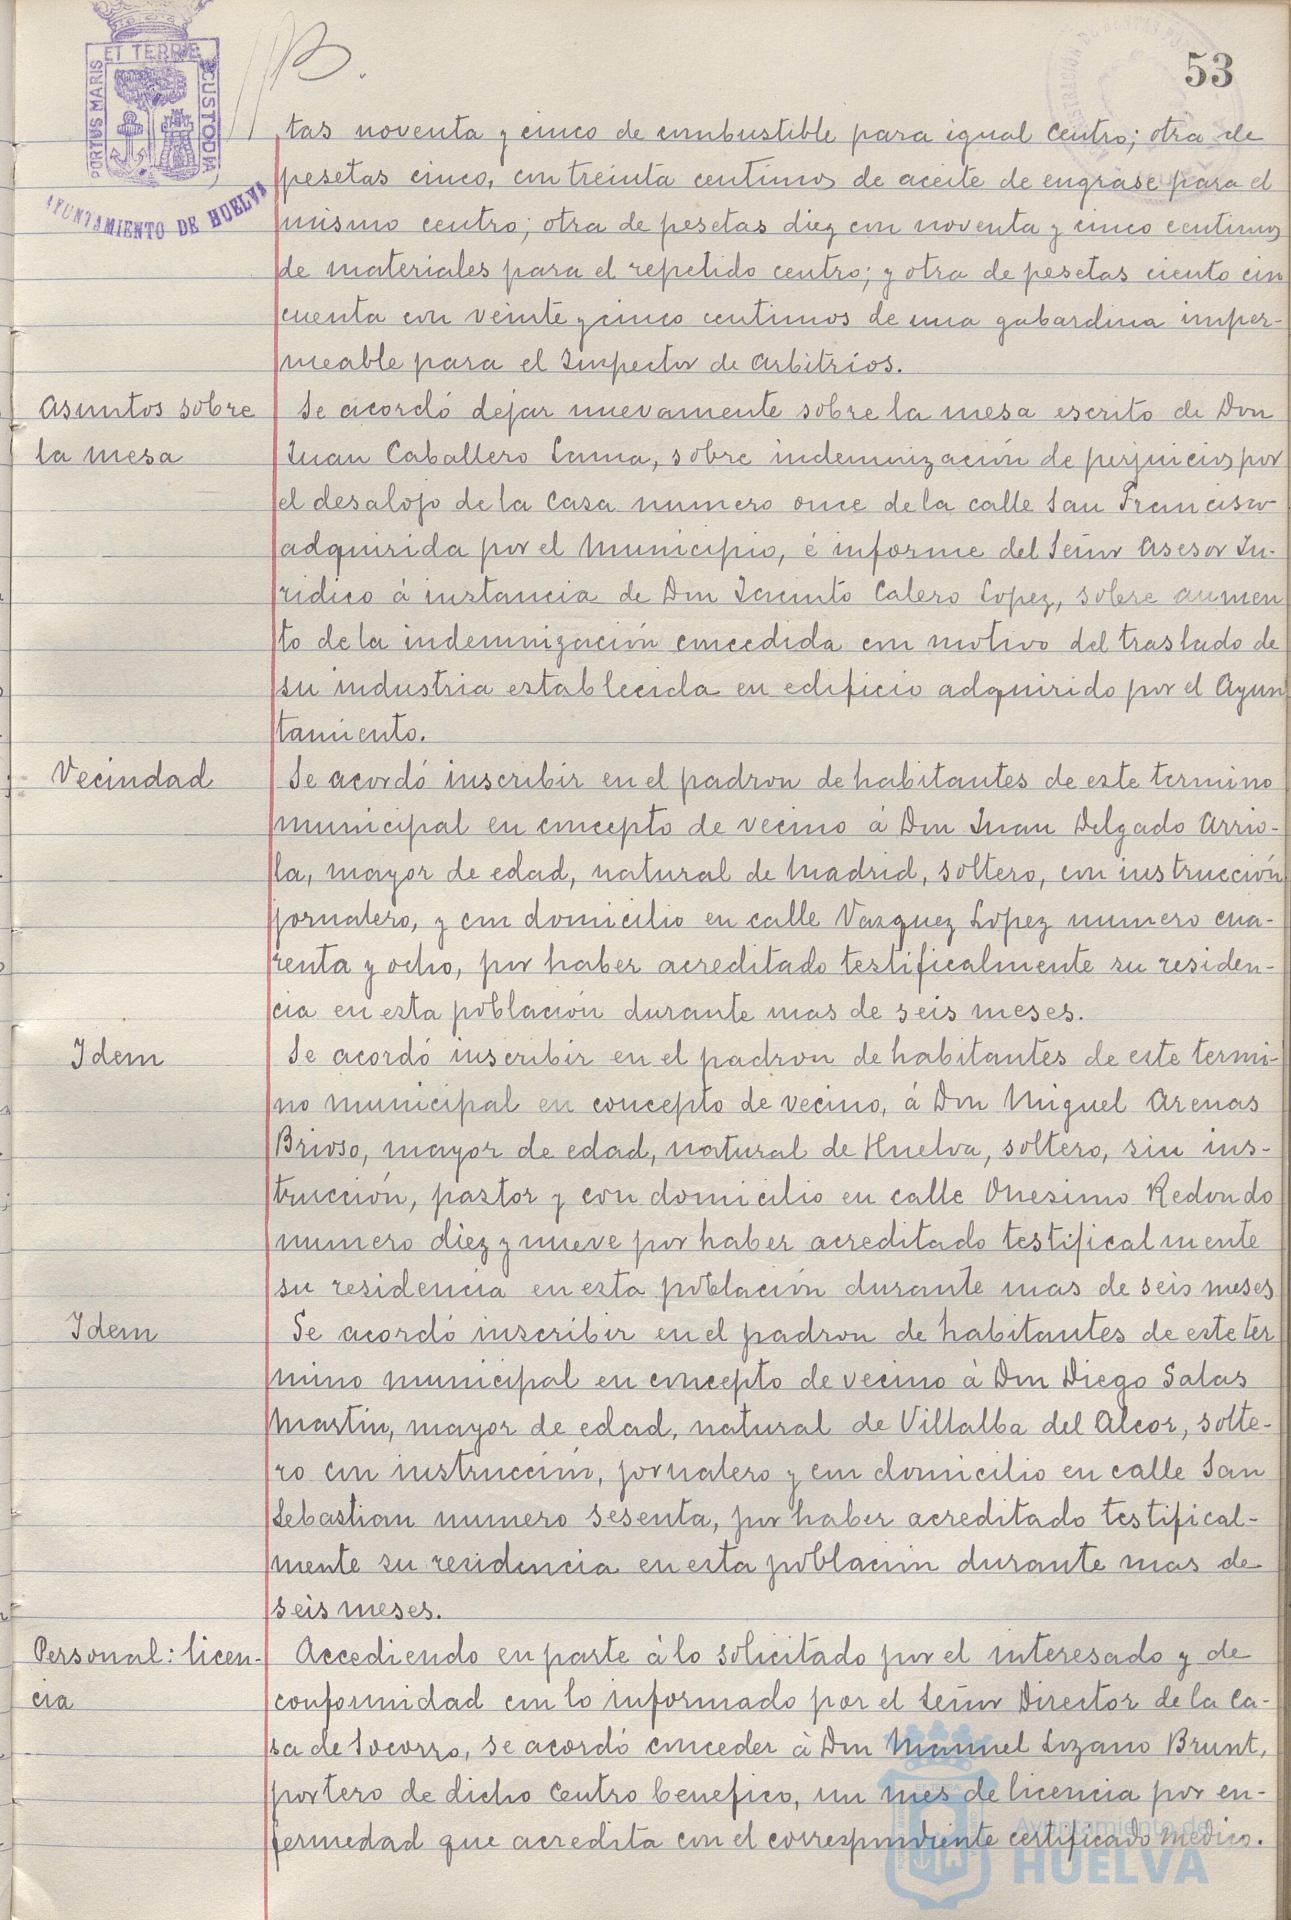 PORTUS MARIS ET TERRÆ CUSTODIA
AYUNTAMIENTO DE HUELVA
53
tas noventa y cinco de combustible para igual Centro; otra de
pesetas cinco, con treinta centimos de aceite de engrase para el
mismo centro; otra de pesetas diez con noventa y cinco centimos
de materiales para el repetido centro; y otra de pesetas ciento cin
cuenta con veinte y cinco centimos de una gabardina imper-
meable para el Inspector de Arbitrios.
Asuntos sobre
la mesa
Se acordó dejar nuevamente sobre la mesa escrito de Don
Juan Caballero Lama, sobre indemnización de perjuicios por
el desalojo de la Casa numero once de la calle San Francisco
adquirida por el Municipio, é informe del Señor Asesor Ju-
ridico á instancia de Don Jacinto Calero Lopez, sobre aumen
to de la indemnización concedida con motivo del traslado de
su industria establecida en edificio adquirido por el Ayun
tamiento.
Vecindad
Se acordó inscribir en el padron de habitantes de este termino
municipal en concepto de vecino á Don Juan Delgado Arrio-
la, mayor de edad, natural de Madrid, soltero, con instrucción
jornalero, y con domicilio en calle Vazquez Lopez numero cua-
renta y ocho, por haber acreditado testificalmente su residen-
cia en esta población durante mas de seis meses.
Idem
Se acordó inscribir en el padron de habitantes de este termi-
no municipal en concepto de vecino, á Don Miguel Arenas
Brioso, mayor de edad, natural de Huelva, soltero, sin ins-
trucción, pastor y con domicilio en calle Onesimo Redondo
numero diez y nueve por haber acreditado testificalmente
su residencia en esta población durante mas de seis meses
Idem
Se acordó inscribir en el padron de habitantes de este ter
mino municipal en concepto de vecino á Don Diego Salas
Martin, mayor de edad, natural de Villalba del Alcor, solte-
ro con instrucción, jornalero y con domicilio en calle San
Sebastian numero sesenta, por haber acreditado testifical-
mente su residencia en esta población durante mas de
seis meses.
Personal: licen-
cia
Accediendo en parte á lo solicitado por el interesado y de
conformidad con lo informado por el Señor Director de la Ca-
sa de Socorro, se acordó conceder á Don Manuel Lozano Brunt,
portero de dicho Centro benefico, un mes de licencia por en-
fermedad que acredita con el correspondiente certificado medico.
Ayuntamiento de
HUELVA